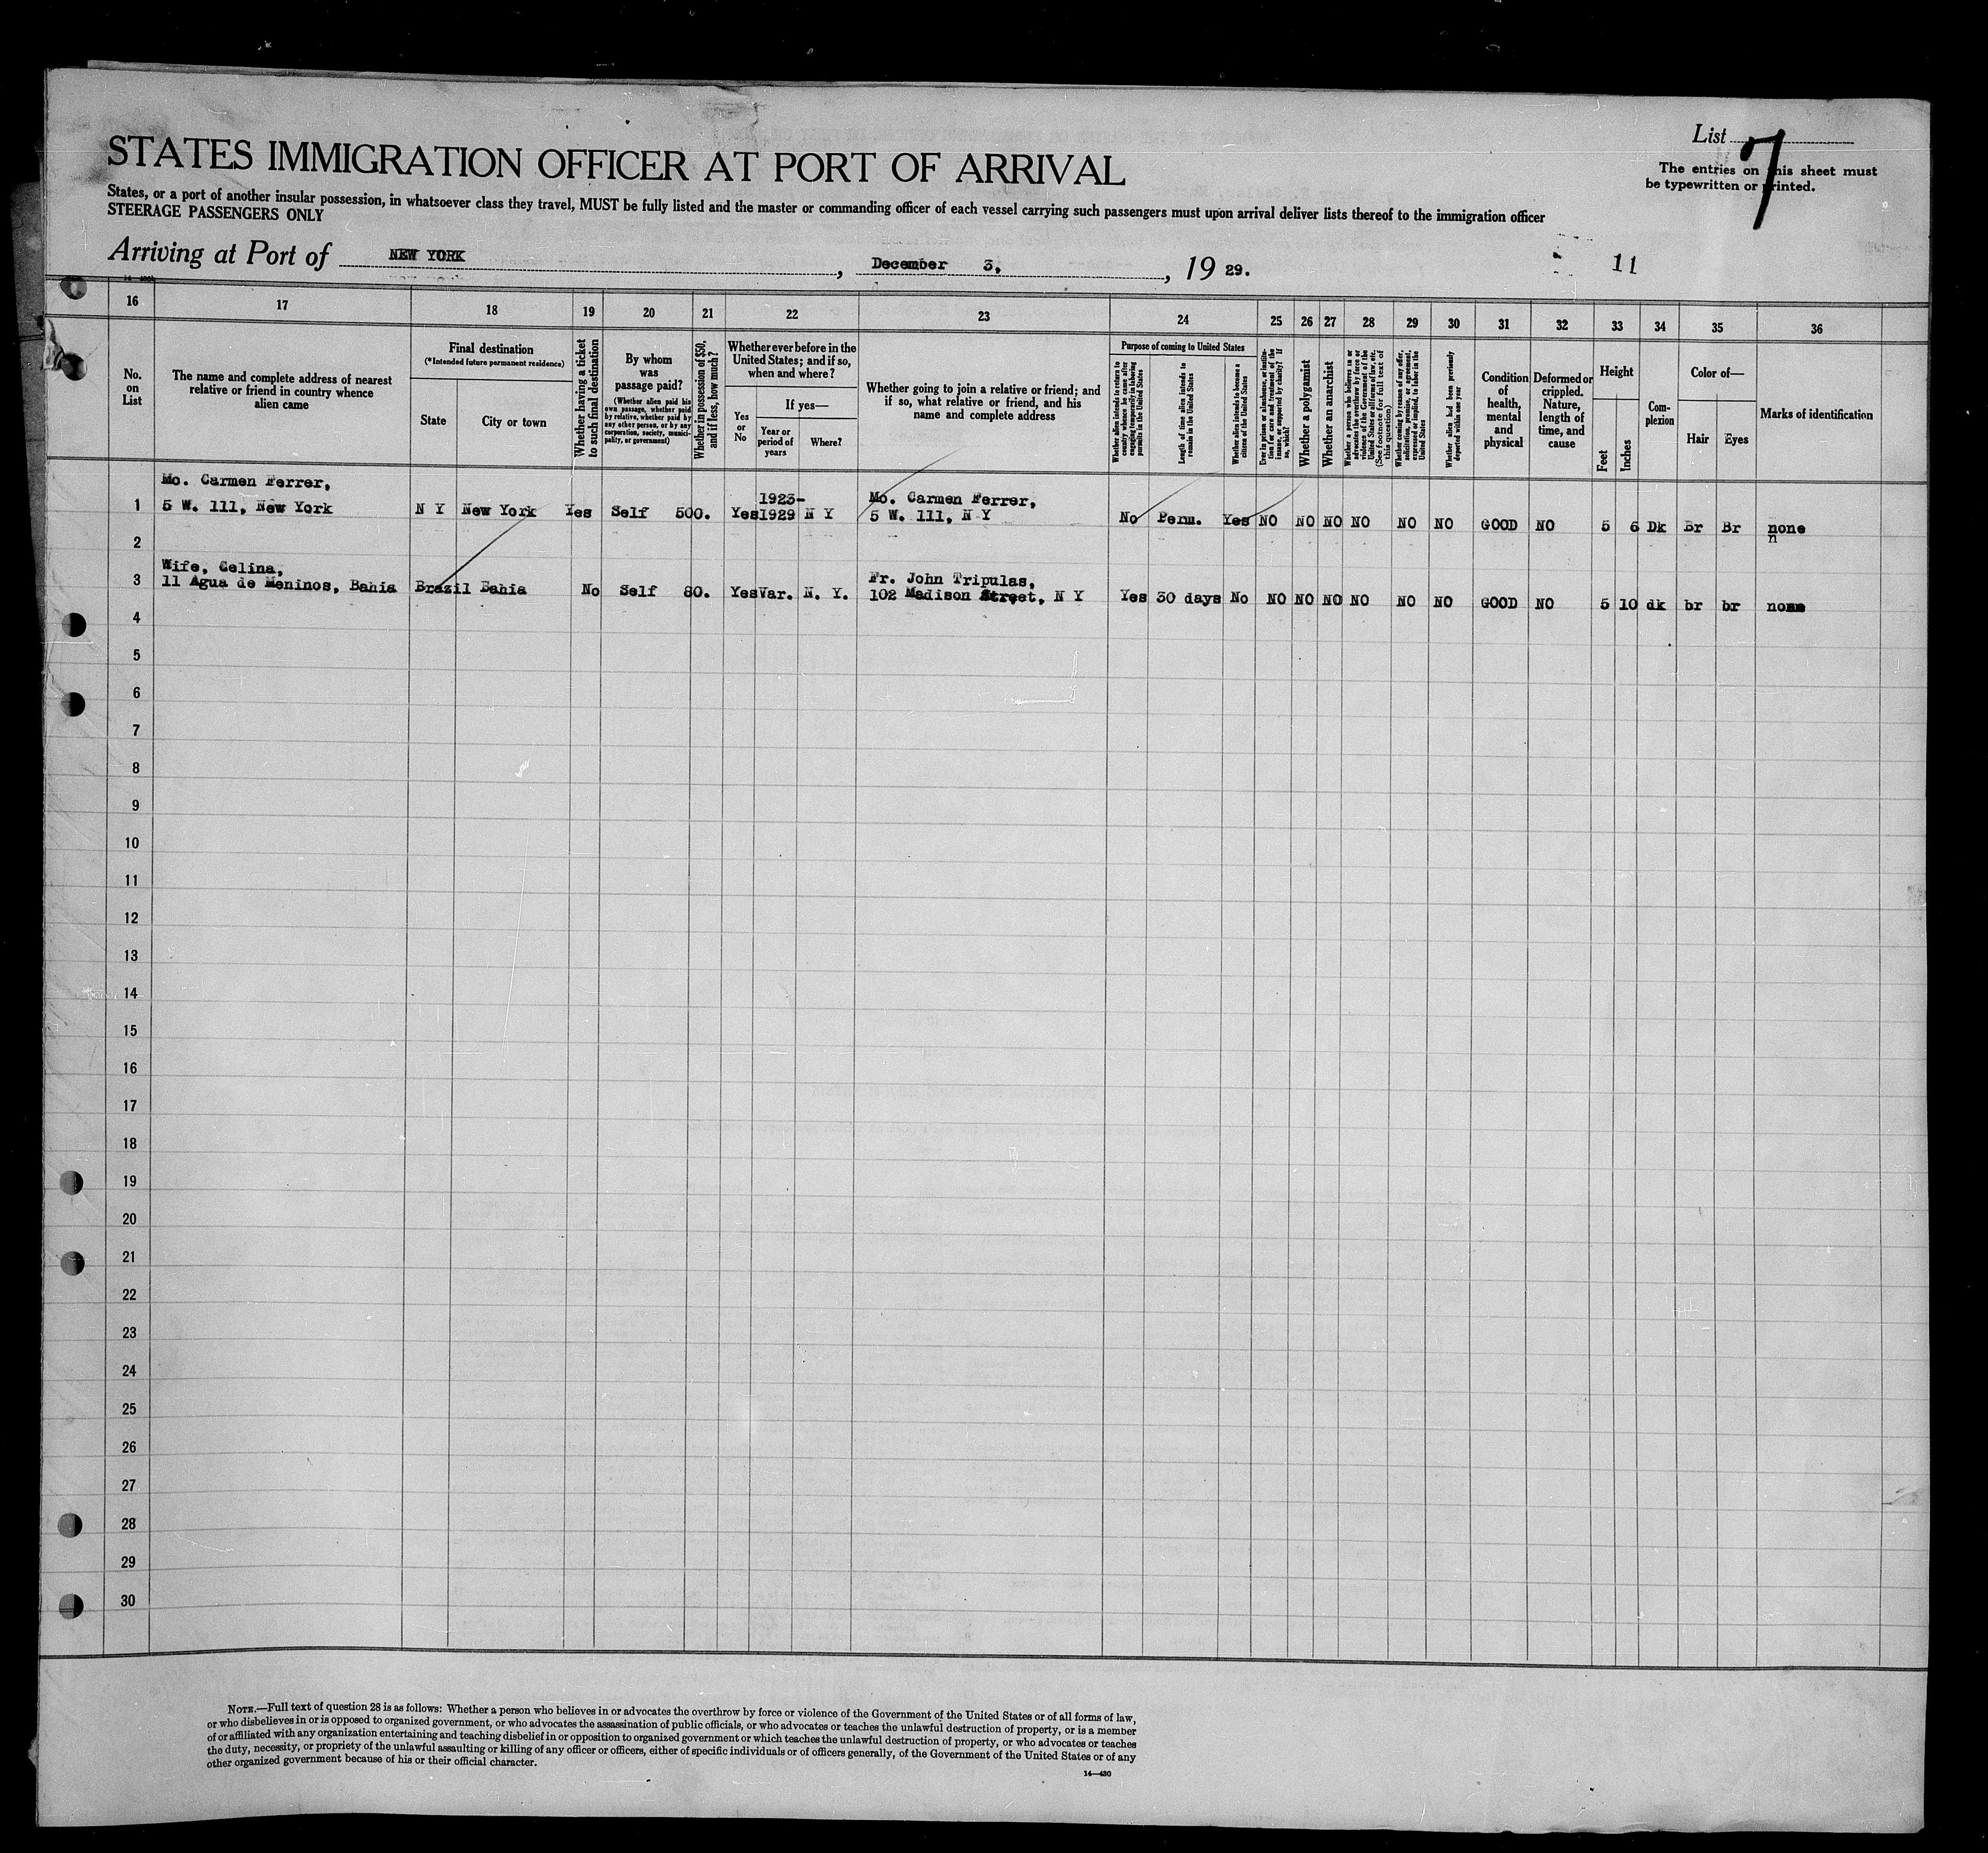 STATES IMMIGRATION OFFICER AT PORT OF ARRIVAL
List 7
The entries on this sheet must
be typewritten or printed.
States, or a port of another insular possession, in whatsoever class they travel, MUST be fully listed and the master or commanding officer of each vessel carrying such passengers must upon arrival deliver lists thereof to the immigration officer
STEERAGE PASSENGERS ONLY
Arriving at Port of NEW YORK, December 3, 19 29.
11
16 17 18 19 20 21 22 23 24 25 26 27 28 29 30 31 32 33 34 35 36
No.
on
List
The name and complete address of nearest
relative or friend in country whence
alien came
Final destination
(*Intended future permanent residence)
State
City or town
Whether having a ticket
to such final destination
By whom
was
passage paid?
(Whether alien paid his
own passage, whether paid
by relative, whether paid by
any other person, or by any
corporation, society, munici-
pality, or government)
Whether in possession of $50,
and if less, how much?
Whether ever before in the
United States; and if so,
when and where?
Yes
or
No
If yes—
Year or
period of
years
Where?
Whether going to join a relative or friend; and
if so, what relative or friend, and his
name and complete address
Purpose of coming to United States
Whether alien intends to return to
country whence he came after
engaging temporarily in laboring
pursuits in the United States
Length of time alien intends to
remain in the United States
Whether alien intends to become a
citizen of the United States
Ever in prison or almshouse, or institu-
tion for care and treatment of the
insane, or supported by charity? If
so, which?
Whether a polygamist
Whether an anarchist
Whether a person who believes in or
advocates the overthrow by force or
violence of the Government of the
United States or all forms of law, etc.
(See footnote for full text of
this question)
Whether coming by reason of any offer,
solicitation, promise, or agreement,
expressed or implied, to labor in the
United States
Whether alien had been previously
deported within one year
Condition
of
health,
mental
and
physical
Deformed or
crippled.
Nature,
length of
time, and
cause
Height
Feet
Inches
Com-
plexion
Color of—
Hair
Eyes
Marks of identification
Mo. Carmen Ferrer,
1923-
Mo. Carmen Ferrer,
1 5 W. 111, New York N Y New York Yes Self 500. Yes 1929 N Y 5 W. 111, N Y No Perm. Yes NO NO NO NO NO NO GOOD NO 5 6 Dk Br Br none
n
2
Wife, Celina,
Fr. John Tripulas,
3 11 Agua de Meninos, Bahia Brazil Bahia No Self 80. Yes Var. N. Y. 102 Madison Street, N Y Yes 30 days No NO NO NO NO NO NO GOOD NO 5 10 dk br br none
4
5
6
7
8
9
10
11
12
13
14
15
16
17
18
19
20
21
22
23
24
25
26
27
28
29
30
NOTE.—Full text of question 28 is as follows: Whether a person who believes in or advocates the overthrow by force or violence of the Government of the United States or of all forms of law,
or who disbelieves in or is opposed to organized government, or who advocates the assassination of public officials, or who advocates or teaches the unlawful destruction of property, or is a member
of or affiliated with any organization entertaining and teaching disbelief in or opposition to organized government or which teaches the unlawful destruction of property, or who advocates or teaches
the duty, necessity, or propriety of the unlawful assaulting or killing of any officer or officers, either of specific individuals or of officers generally, of the Government of the United States or of any
other organized government because of his or their official character.
14—430